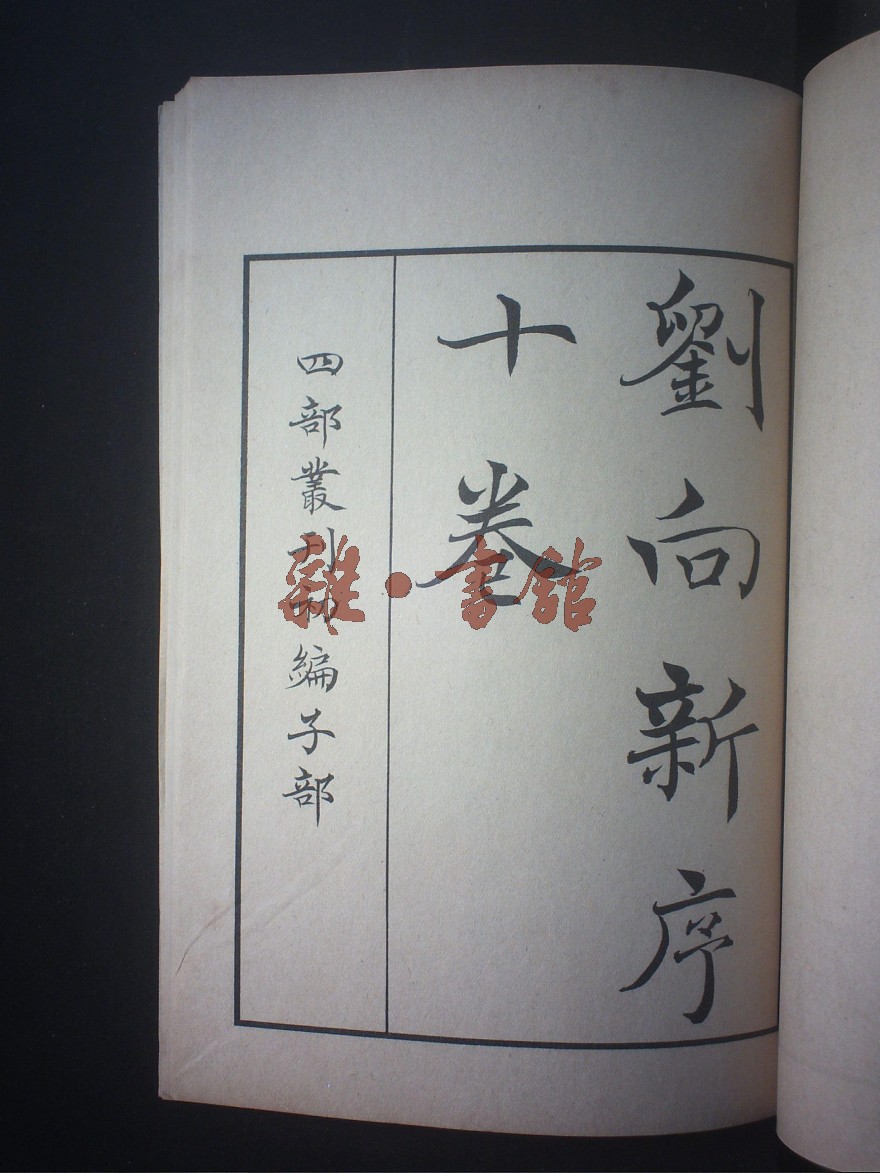 劉向新序
十卷
四部叢刊初編子部
雜·書館